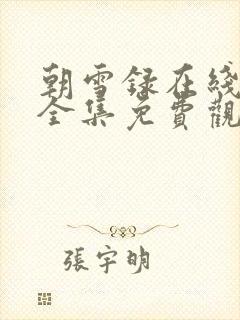 朝雪録在綫
全集免費觀
張宇明